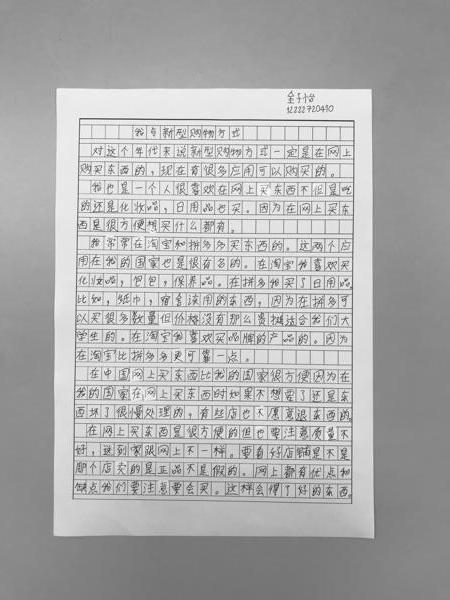 金子怡
12222720490
我与新型购物方式
对这个年代来说新型购物方式一定是在网上
购买东西的，现在有很多应用可以购买的。
我也是一个人很喜欢在网上买东西不但是吃
的还是化妆品，日用品也买。因为在网上买东
西是很方便想买什么都有。
我常常在淘宝和拼多多买东西的。这两个应
用在我的国家也是很有名的。在淘宝我喜欢买
化妆品，包包，保养品。在拼多我买了日用品，
比如，纸巾，宿舍该用的东西，因为在拼多可
以买很多数量但价格没有那么贵挺适合我们大
学生的。在淘宝我喜欢买品牌的产品的。因为
在淘宝比拼多多更可靠一点。
在中国网上买东西比我的国家很方便因为在
我的国家在网上买东西时如果不想要了还是东
西坏了很慢处理的，有些店也不愿意退东西的。
在网上买东西是很方便的但也要注意质量不
好，送到家跟网上不一样。要看好店铺是不是
那个店卖的是正品不是假的。网上都有优点和
缺点我们要注意要会买。这样会得了好的东西。